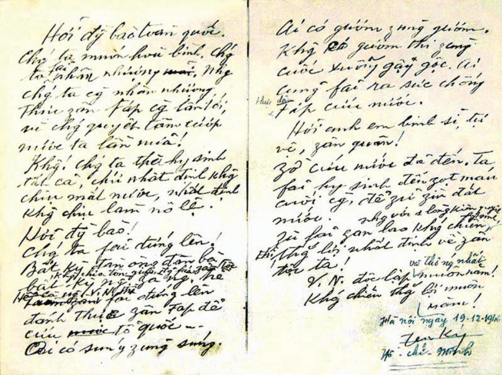 Hỡi đồng bào toàn quốc.
Chg ta muốn hoà bình, chg
ta fải nhân nhượng. Nhg
chg ta cg nhân nhượng
thực zân Fáp cg lấn tới,
vì chg quyết tâm cướp
nước ta lần nữa!
Khg! chg ta thà hy sinh
tất cả, chứ nhất định khg
chịu mất nước, nhất định
khg chịu làm nô lệ.
Hỡi đg bào!
Chg ta fải đứng lên!
Bất kỳ đàn ông đàn bà
bất kỳ ng già ng trẻ
fải đứng lên
đánh thực zân Fáp để
cứu tổ quốc –
Ai có súng zùng súng.
Ai có gươm zùng gươm.
Khg có gươm thì zùng
cuốc xuổng gậy gộc. Ai
cũng fải ra sức chống
Fáp cứu nước.
Hỡi anh em binh sĩ, tự
vệ, zân quân!
Zờ cứu nước đã đến. Ta
fải hy sinh đến zọt máu
cuối cg, để zữ zìn đất
nước.
Zù fải zan lao khg chiến,
thg lợi nhất định về zân
tộc ta!
V.N. độc lập và thg nhất
muôn năm!
Khg chiến thg lợi muôn
năm!
Hà nội ngày 19-12-1946
Hồ chí Minh